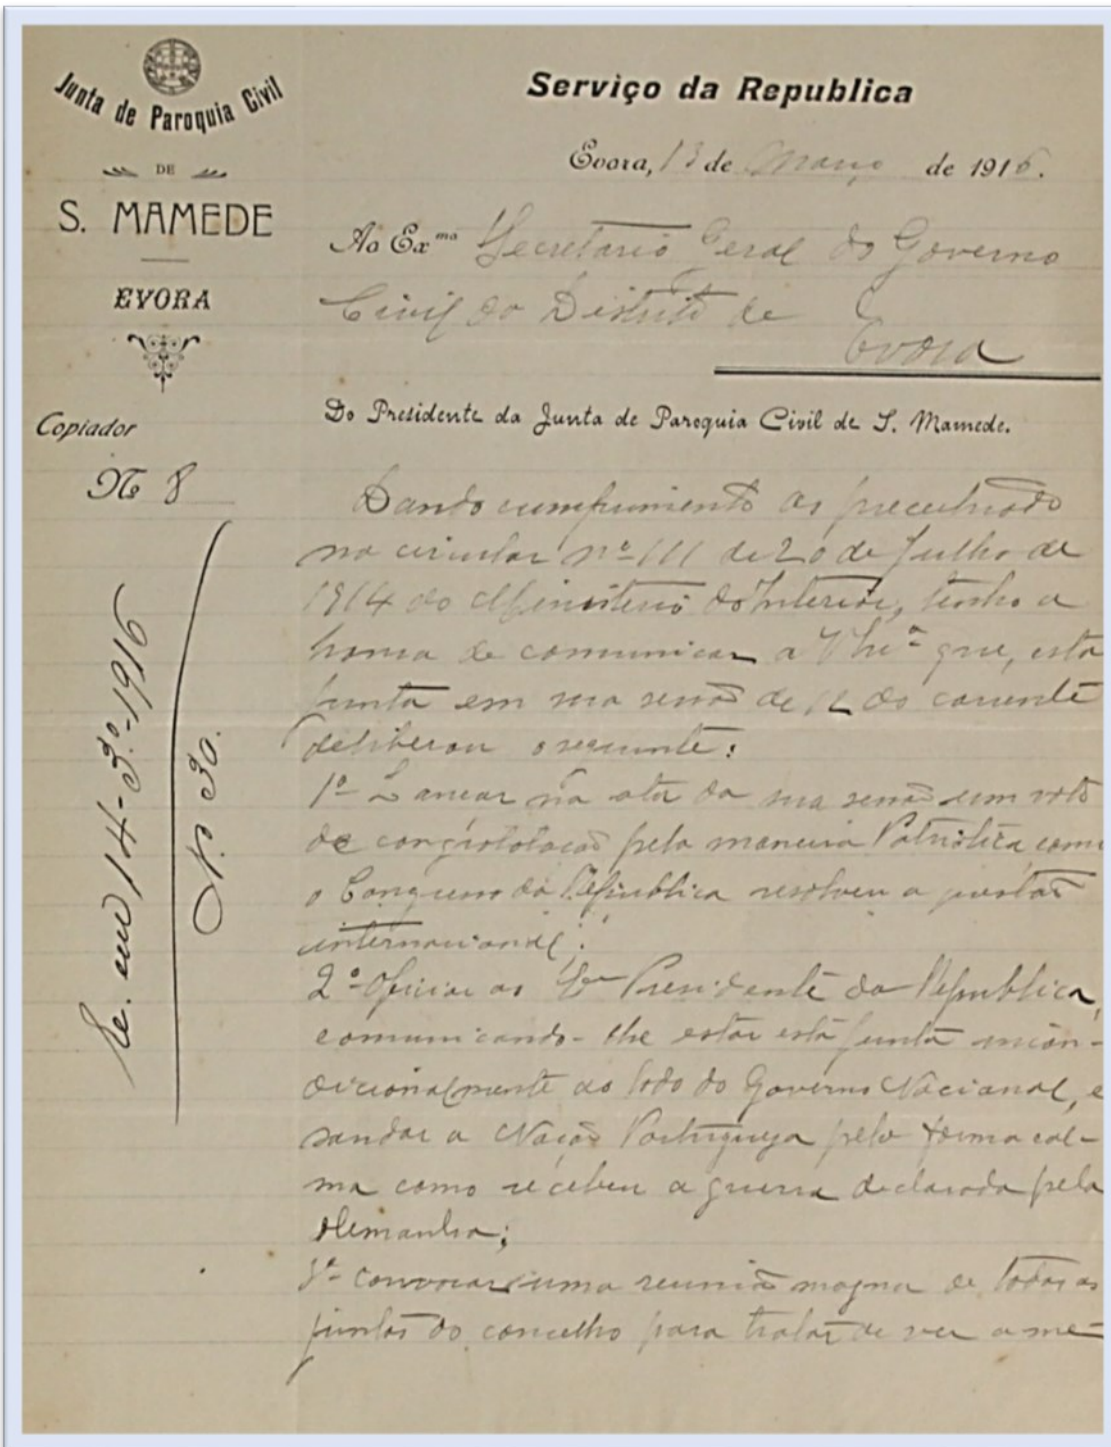 Junta de Paroquia Civil
DE
S. MAMEDE
EVORA
Copiador
Nº 8
Re. em 14-3º-1916
Nº 30.
Serviço da Republica
Evora, 13 de Março de 1916.
Ao Exᵐᵒ Secretario Geral do Governo
Civil do Distrito de
Evora
Do Presidente da Junta de Paroquia Civil de S. Mamede.
Dando cumprimento ao preceituado
na circular nº 111 de 20 de Julho de
1914 do Ministerio do Interior, tenho a
honra de comunicar a que, esta
junta em sua sessão de 12 do corrente
deliberou o seguinte:
1º Lançar na ata da sua sessão um voto
de congratulação pela maneira Patriotica como
o Congresso da Republica resolveu a questão
internacional;
2º Oficiar ao Exᵐᵒ Presidente da Republica,
comunicando-lhe estar esta junta incon-
dicionalmente ao lado do Governo Nacional, e
saudar a Nação Portugueza pela forma cal-
ma como recebeu a guerra declarada pela
Alemanha;
3º Convocar uma reunião magna de todas as
juntas do concelho para tratar de ver a me-